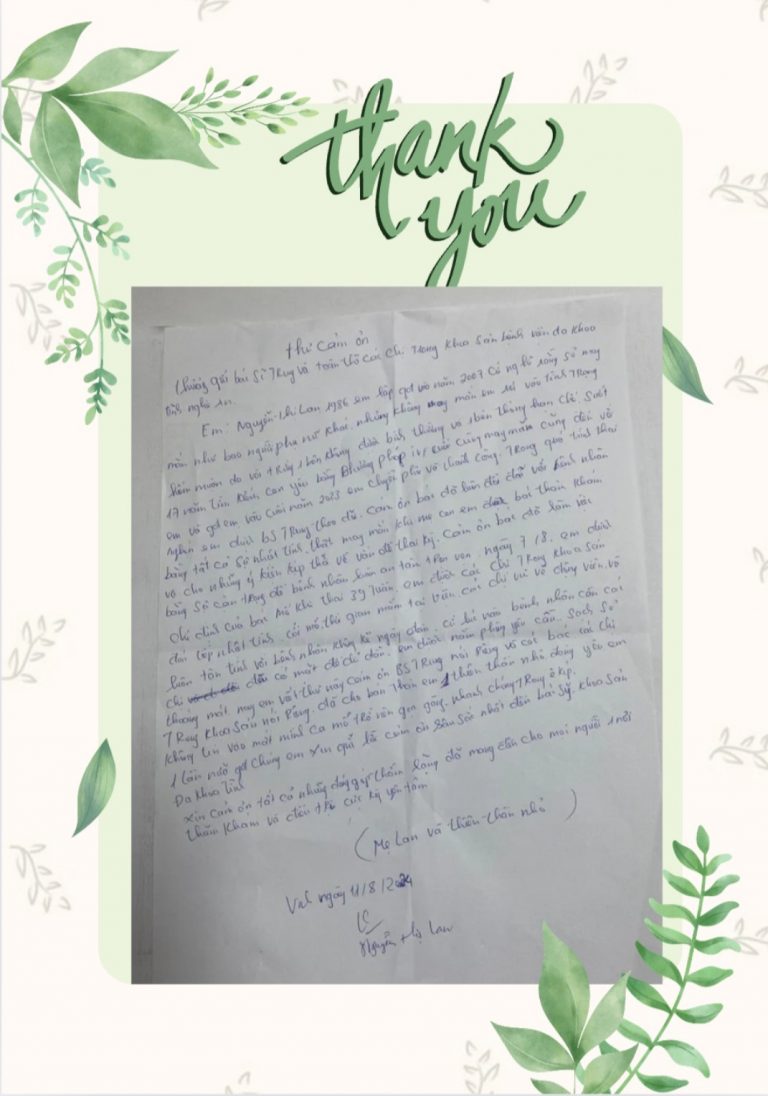 thank
you
Thư cảm ơn
thương gửi bác Sĩ Trung và toàn thể các chị Trong khoa Sản bệnh viện đa khoa
Tỉnh nghệ An.
Em: Nguyễn Thị Lan 1986 em lập gđ vào năm 2007 Cứ nghĩ rằng sẽ may
mắn như bao người phụ nữ khác. nhưng không may mắn em rơi vào Tình Trạng
hiếm muộn do vòi trứng 1 bên đông dưới bình thường và 1 bên thông hạn chế. Suốt
17 năm Tìm kiếm con yêu bằng phương pháp ivf cuối cùng may mắn cũng đến với
em và gđ em vào cuối năm 2023 em chuyển phôi và thành công. Trong quá trình thai
nghén em được BS Trung theo dõi. Cảm ơn bác đã luôn đối đãi với bệnh nhân
bằng tất cả sự nhiệt tình. thật may mắn khi mẹ con em được bác thăm khám
và cho những ý kiến kịp thời về vấn đề thai kỳ. Cảm ơn bác đã làm việc
bằng sự cẩn trọng để bệnh nhân luôn an tâm trọn vẹn. ngày 7/8. em được
chỉ định của bác mổ khi thai 39 Tuần. em được các chị Trong khoa Sản
đón tiếp nhiệt tình. Cả mổ thời gian nằm tại viện các chị vui vẻ động viên. và
luôn tận tình với bệnh nhân không kể ngày đêm. cứ khi nào bệnh nhân cần các
chị đều có mặt để đỡ đần. em được nằm phòng yêu cầu. Sạch Sẽ
thoáng mát nay em viết thư này cảm ơn BS Trung nói Riêng và các bác các chị
Trong khoa Sản nói Chung. đã cho bản thân em 1 thiên thần nhỏ đáng yêu em
không tin vào mắt mình ca mổ trở nên gọn gàng. nhanh chóng Trong ê kíp.
1 lần nữa gđ chúng em xin gửi lời cảm ơn sâu sắc nhất đến bác Sỹ. khoa Sản
Đa khoa Tỉnh
xin cảm ơn tất cả những đóng góp thầm lặng đã mang đến cho mọi người 1 nơi
thăm khám và điều trị cực kỳ yên tâm
(Mẹ Lan và thiên thần nhỏ)
ngày 11/8/2024
Nguyễn thị Lan